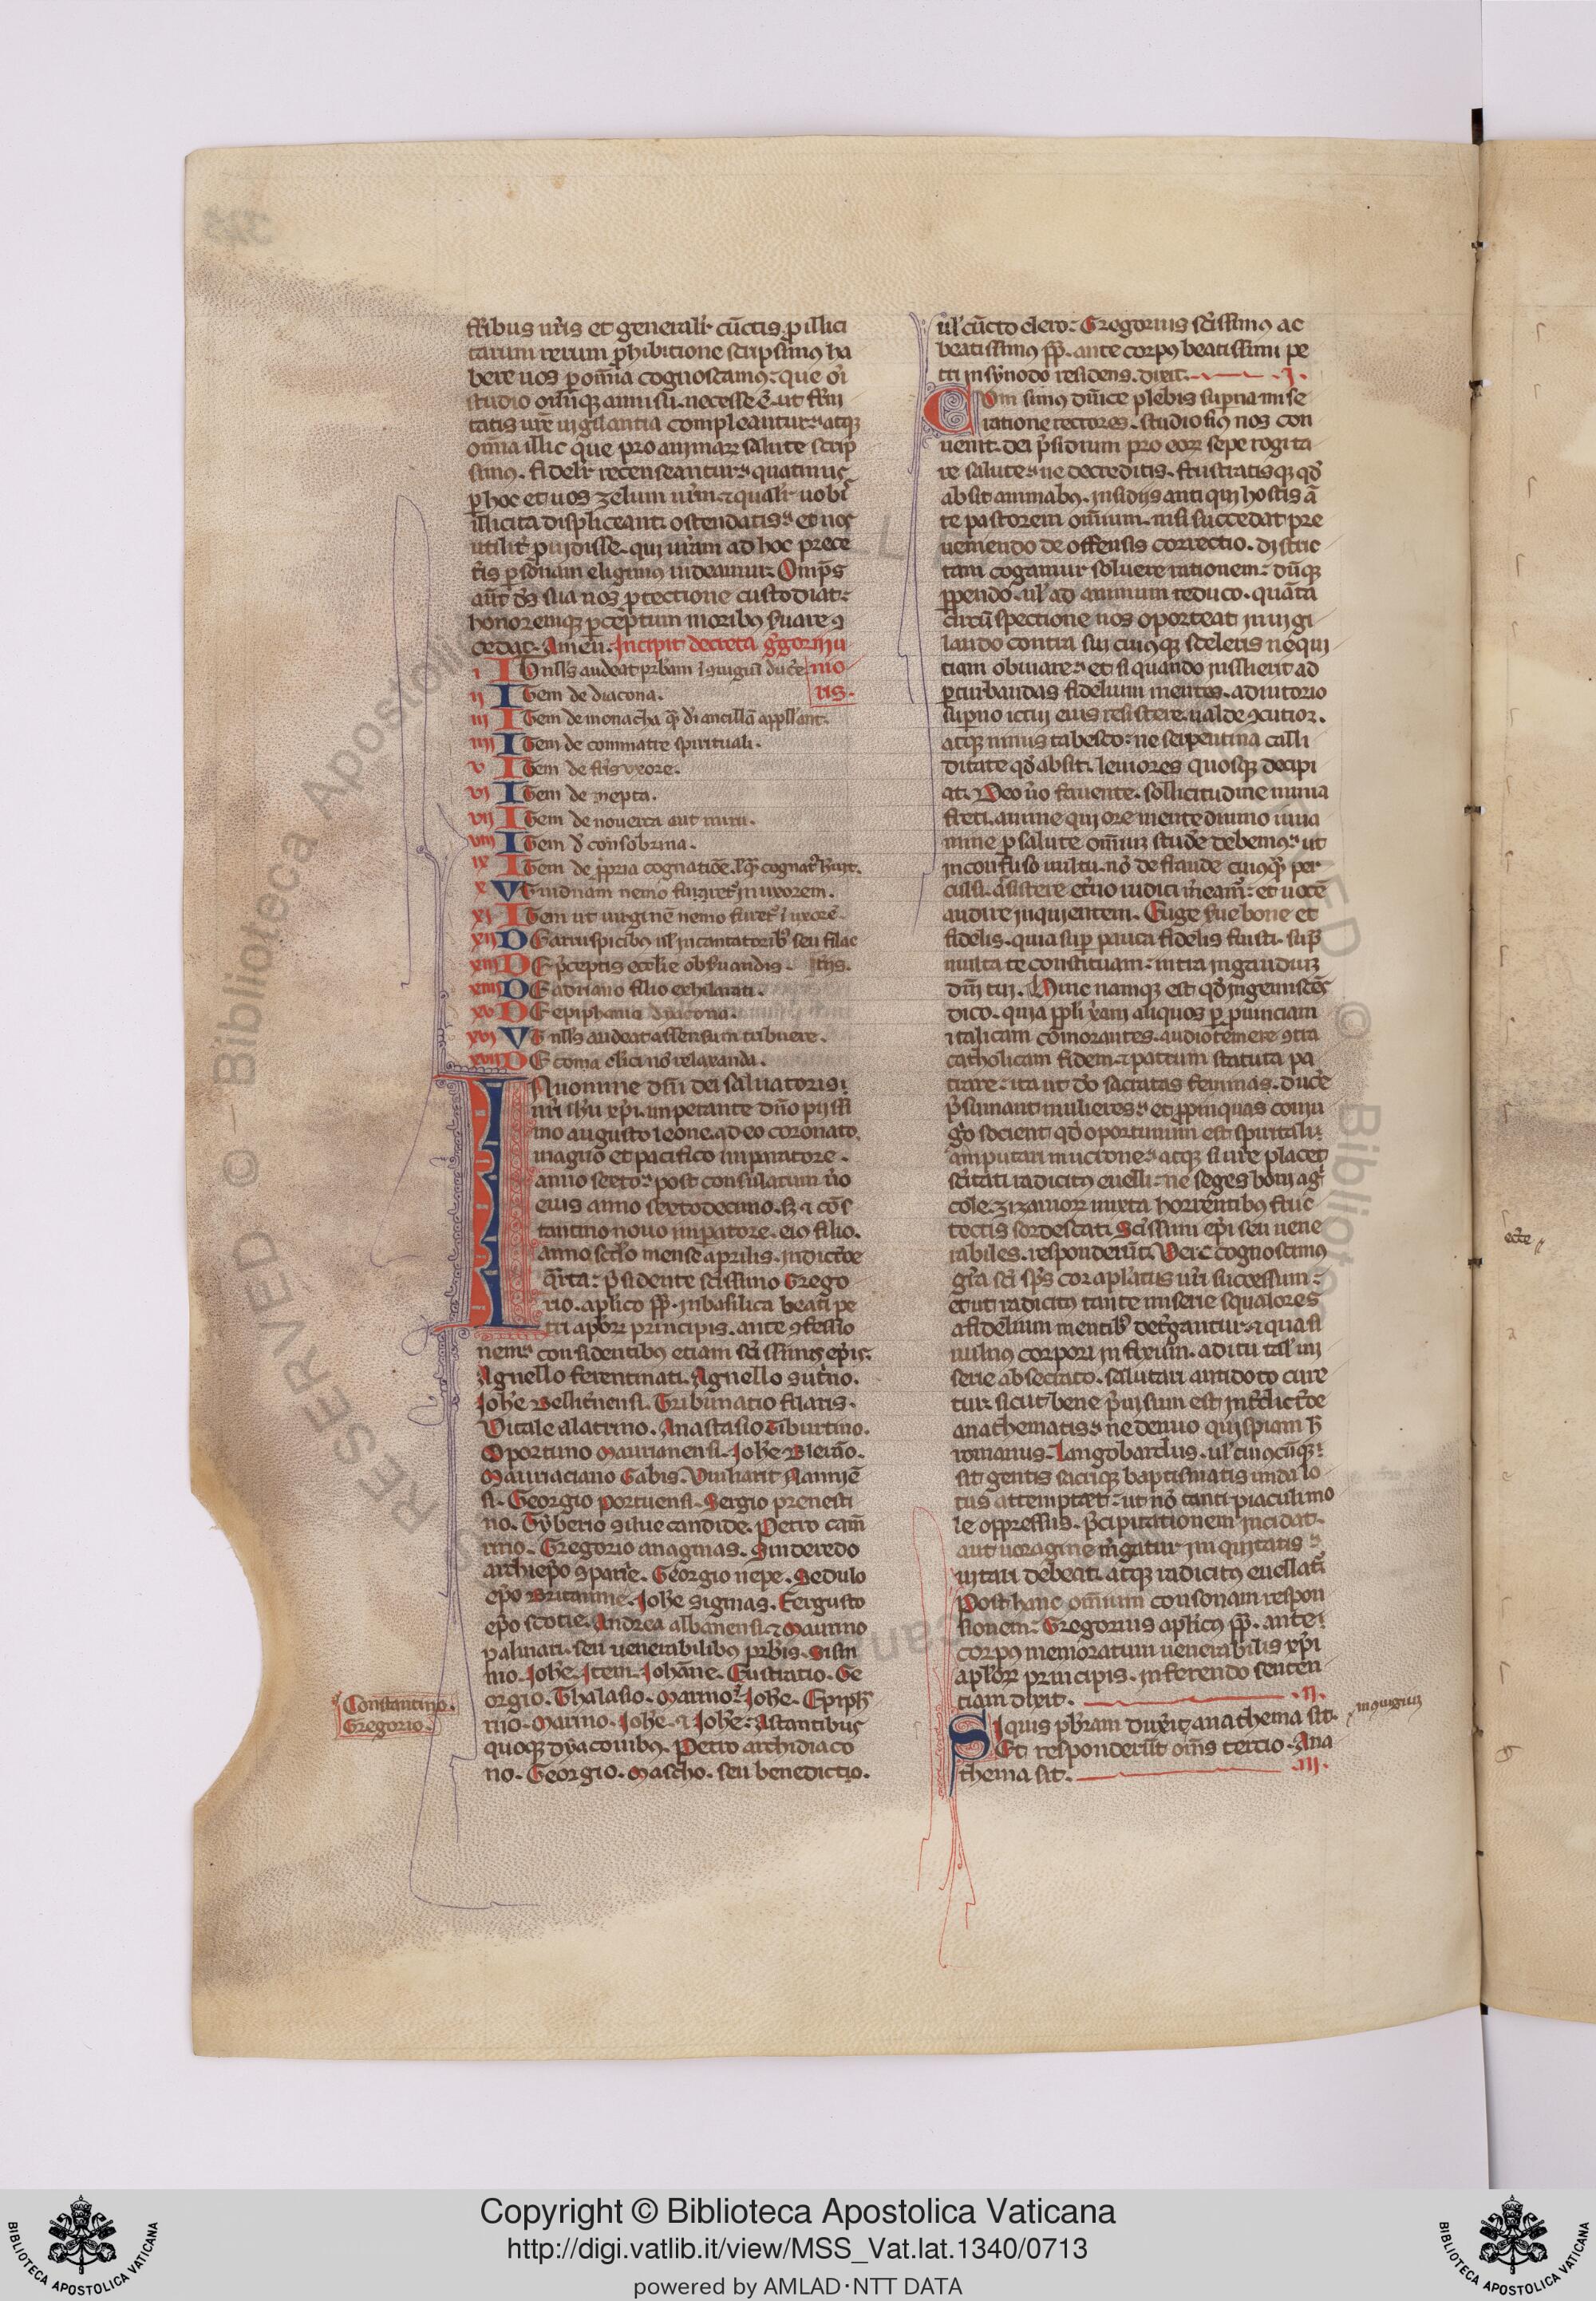 fr̄ibus ur̄is et generalit̄ cūctis. p illici
tarum rerum p̄hibitione scripsimꝰ ha
bere uos p om̄ia cognoscamꝰ: que oī
studio oīuꝗ annisu. necesse ē. ut fr̄ni
tatis ur̄e uigilantia compleantur. atꝗ
om̄ia illic que pro animaꝝ salute scrip
simꝰ. fidelit̄ recenseantur. quatinus
p hoc et uos zelum ur̄m ⁊ qualit̄ uobis
illicita displiceant. ostendatis. et nos
utilit̄ puidisse. qui ur̄am ad hoc prece
t̄is psonam eligimꝰ uideamur. Omp̄s
aūt d̄s sua nos ptectione custodiat:
honoremꝗ pceptum moribꝰ suare ꝯ
cedat. Amen. Incipit decreta gͥgorij iu
i UT nlls̄ audeat pr̄bam ī ꝯiugiū duc̄e nio
ii ITem de diacona. ris.
iii ITem de monacha qͣ d̄i ancillā appll'ant.
iiii ITem de commatre spirituali.
v ITem de fr̄is uxore.
vi ITem de nepta.
vii ITem de nouerca aut nuru.
viii ITem d̄ consobrina.
ix ITem de p̄pria cognatiōe. l' qͣ cognatꝰ h̄uit.
x VT uiduam nemo furet in uxorem.
xi ITem ut uirginē nemo furet ī uxorē.
xii DE aruspicibꝰ ul' incantatoribꝰ seu filac
xiii DE p̄ceptis eccl'ie obs̄uandis. t̄iis.
xiiii DE adriano filio exhilarati.
xv DE epiphania diacona.
xvi VT nlls̄ audeat assensum tribuere.
xvii DE coma cl'ici nō relaxanda.
IN nomine dn̄i dei saluatoris
nr̄i ih̄u xp̄i. imperante dn̄o piissi
mo augusto leone. a deo coronato.
magno et pacifico imperatore.
anno sexto. post consulatum u̇o
eius anno sextodecimo. s; ⁊ cōs
tantino nouo imperatore. eiꝰ filio.
anno scd̄o mense aprilis. indictōe
qͣrta: p̄sidente sc̄issimo Grego
rio. aplico pp̄. in basilica beati pe
tri apl'oꝝ principis. ante ꝯfessio
nem. considentibus etiam sc̄issimis ep̄is.
Agnello ferentinati. Agnello sut̄no.
Joh'e Vellit̄nensi. Tribunatio filaris.
Vitale alatrino. Anastasio Tiburtino.
Oportuno Maurianensi. Joh'e Blerāo.
Mauriaciano Gabis. Viuharit Nannię
si. Georgio Portuensi. Sergio prenesti
no. Tyberio silue candide. Petro cam̄
rino. Gregorio anagnias. Sinderedo
archiep̄o spanie. Georgio nepe. Sedulo
ep̄o Britannie. Joh'e signias. Fergusto
ep̄o scotie. Andrea albanensi. ⁊ Maurino
palinati. seu uenerabilibꝰ pr̄bis. Sisin
nio. Joh'e. Item. Johāne. Eustratio. Ge
orgio. Thalasio. Marino. Joh'e. Epiph'
nio. Marino. Joh'e. ⁊ Joh'e. Astantibus
quoꝗ dyaconibꝰ. Petro archidiaco
no. Georgio. Moscho. seu benedictio.
Constantino.
Gregorio.
ul' cūcto clero. Gregorius sc̄issimꝰ ac
beatissimꝰ pp̄. ante corpꝰ beatissimi pe
tri in synodo residens. dixit. .i.
CUm simꝰ dn̄ice plebis supna mise
ratione rectores. studiosiꝰ nos con
uenit dei p̄sidium pro eoꝝ sepe cogita
re salute. ne decreditis. frustratisꝗ qd̄
absit animabꝰ. insidijs antiqui hostis ā
te pastorem om̄ium. nisi succedat pre
ueniendo de offensis correctio. distric
tam cogamur soluere rationem. dūꝗ
ppendo. ul' ad animum reduco. quāta
circū spectione nos oporteat inuigi
lando contra sui cuiꝰꝗ sceleris neq̄ui
tiam obuiare. et si quando insilient ad
pturbandas fidelium mentes. adiutorio
supno ictui eius resistere. ualde ꝯcutior.
atꝗ nimis tabesco. ne serpentina calli
ditate qd̄ absit. leuiores quosꝗ decipi
at. Deo u̇o fauente. sollicitudine nimia
freti. anime qui ore mente diuino iuua
mine p salute om̄iuꝫ studē debemꝰ. ut
inconfuso uultu. nō de fraude cuiꝰꝗ per
culsi. assistere et̄no iudici m̄eam̄. et uocē
audire inquientem. Euge s̄ue bone et
fidelis. quia sup pauca fidelis fuisti. sup
multa te constituam: intra in gaudiuꝫ
dn̄i tui. Huic namꝗ est qd̄ ingemiscēs
dico. quia ppl'i xp̄iani aliquos p puinciam
italicam cōmorantes. audio temere ꝯtra
catholicam fidem. ⁊ patrum statuta pa
trare. ita ut d̄o sacratas feminas. duc̄e
p̄sumant mulieres. et ppinquas coniu
gio socient. qd̄ oportunum est spiritali
amputari mucrone. atꝗ si ur̄e placet
sc̄itati radicitꝰ euelli. ne seges boni agͥ
cole. zizanioꝝ mixta horrentibꝰ fruc
tectis sordescat. Sc̄issimi ep̄i seu uene
rabiles. responderūt. Vere cognoscimꝰ
gr̄a sc̄i sp̄s cor apl'atus ur̄i successum.
et ut radicitꝰ tante miserie squalores
a fidelium mentibꝰ det̄gantur. ⁊ quasi
uulnꝰ corpori infixum. aditu tal' mi
serie absecrato. salutari antidoto cure
tur. sicut bene p̄uisum est. int̄dict̄oe
anathematis. ne denuo quispiam h̄
romanus. Langobardus. ul' cuiꝰcūꝗ
sit gentis sacriꝗ baptismatis unda lo
tus attemptet. ut nō tanti piaculi mo
le oppressus. p̄cipitationem incidat.
aut uoragine m̄gatur iniquitatis
uitari debeat. atꝗ radicitꝰ euellat̄.
Post hanc om̄ium consonam respon
sionem. Gregorius aplicꝰ pp̄. ante
corpꝰ memoratum uenerabilis xp̄i
apl'oꝝ principis. inferendo senten
tiam dixit. .ii.
SI quis pr̄bram duxerit, anathema sit. in ꝯiugiuꝫ
Et responderūt om̄s tertio. Ana
thema sit. .iii.
ecc̄e
Copyright © Biblioteca Apostolica Vaticana
http://digi.vatlib.it/view/MSS_Vat.lat.1340/0713
powered by AMLAD·NTT DATA
BIBLIOTECA APOSTOLICA VATICANA
BIBLIOTECA APOSTOLICA VATICANA